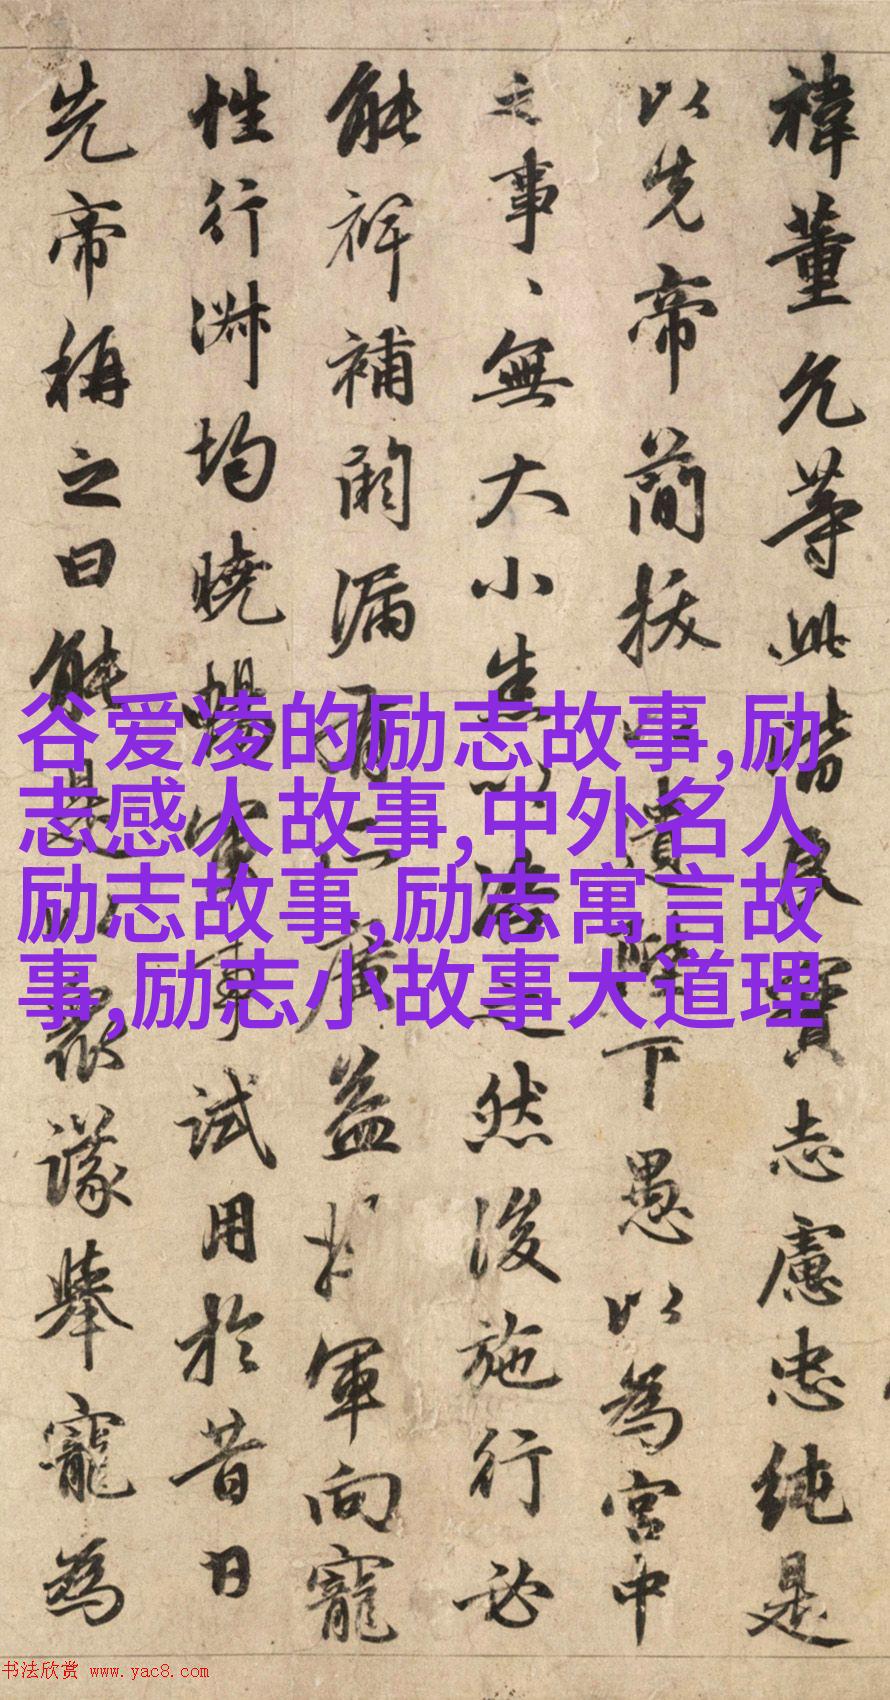 禕董允等此皆良實志慮忠純是
以先帝簡拔以遺陛下愚以為宮中
之事、無大小悉以咨之然後施行必
能裨補闕漏有所廣益將軍向寵
性行淑均曉暢軍事試用於昔日
先帝稱之曰能是以眾議舉寵為
谷爱凌的励志故事,励
志感人故事,中外名人
励志故事,励志寓言故
事,励志小故事大道理
书法欣赏 www.yac8.com